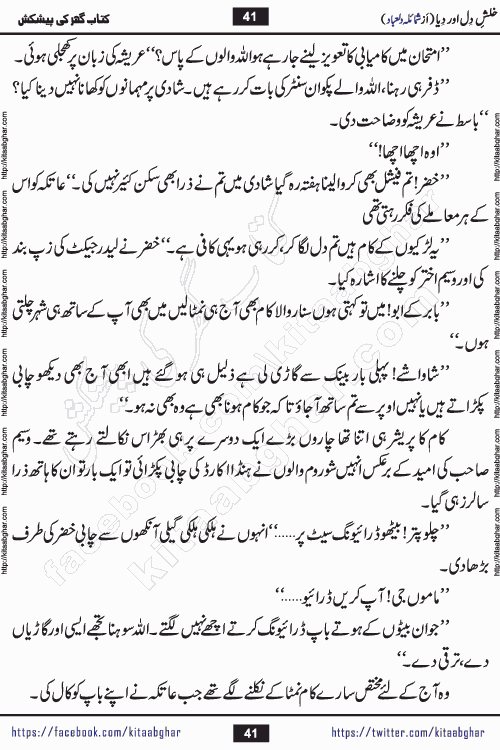 خلشِ دِل اور دِیا (از شمائلہ دلعباد)
41
کتاب گھر کی پیشکش
’’امتحان میں کامیابی کا تعویز لینے جا رہے ہو اللہ والوں کے پاس؟‘‘ عریشہ کی زبان پر کھجلی ہوئی۔
’’ڈفر ہی رہنا، اللہ والے پکوان سنٹر کی بات کر رہے ہیں۔ شادی پر مہمانوں کو کھانا نہیں دینا کیا؟
‘‘ باسط نے عریشہ کو وضاحت دی۔
’’اوہ اچھا اچھا!‘‘
’’خضر! تم فیشل بھی کروا لینا ہفتہ رہ گیا شادی میں تم نے ذرا بھی سکن کئیر نہیں کی۔‘‘ عاتکہ کو اس
کے ہر معاملے کی فکر رہتی تھی
’’یہ لڑکیوں کے کام ہیں تم دل لگا کر، کر رہی ہو یہی کافی ہے۔‘‘ خضر نے لیدر جیکٹ کی زپ بند
کی اور وسیم اختر کو چلنے کا اشارہ کیا۔
’’بابر کے ابو! میں تو کہتی ہوں سنار والا کام بھی آج ہی نمٹا لیں میں بھی آپ کے ساتھ ہی شہر چلتی
ہوں۔‘‘
’’شاواشے! پہلی بار بینک سے گاڑی لی ہے ذلیل ہی ہو گئے ہیں ابھی آج بھی دیکھو چابی
پکڑاتے ہیں یا نہیں اوپر سے تم ساتھ آجاؤ تا کہ جو کام ہونا بھی ہے وہ بھی نہ ہو۔‘‘
کام کا پریشر ہی اتنا تھا چاروں بڑے ایک دوسرے پر ہی بھڑاس نکالتے رہتے تھے۔ وسیم
صاحب کی امید کے برعکس انہیں شوروم والوں نے ہنڈا اکارڈ کی چابی پکڑائی تو ایک بار تو ان کا ہاتھ ذرا
سا لرز ہی گیا۔
’’چلو پتر! بیٹھو ڈرائیونگ سیٹ پر......‘‘ انہوں نے ہلکی ہلکی گیلی آنکھوں سے چابی خضر کی طرف
بڑھا دی۔
’’ماموں جی! آپ کریں ڈرائیو......‘‘
’’جوان بیٹوں کے ہوتے باپ ڈرائیونگ کرتے اچھے نہیں لگتے۔ اللہ سوہنا تجھے ایسی اور گاڑیاں
دے، ترقی دے۔‘‘
وہ آج کے لئے مختص سارے کام نمٹا کے نکلنے لگے تھے جب عاتکہ نے اپنے باپ کو کال کی۔
https://facebook.com/kitaabghar
41
https://twitter.com/kitaabghar
http://kitaabghar.com